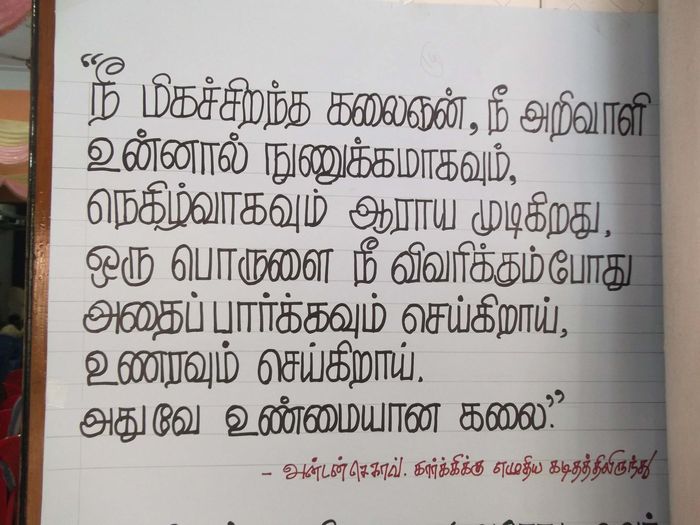 “நீ மிகச்சிறந்த கலைஞன், நீ அறிவாளி
உன்னால் நுணுக்கமாகவும்,
நெகிழ்வாகவும் ஆராய முடிகிறது,
ஒரு பொருளை நீ விவரிக்கும்போது
அதைப் பார்க்கவும் செய்கிறாய்,
உணரவும் செய்கிறாய்.
அதுவே உண்மையான கலை.”
- அன்டன் செகாவ். கார்க்கிக்கு எழுதிய கடிதத்திலிருந்து